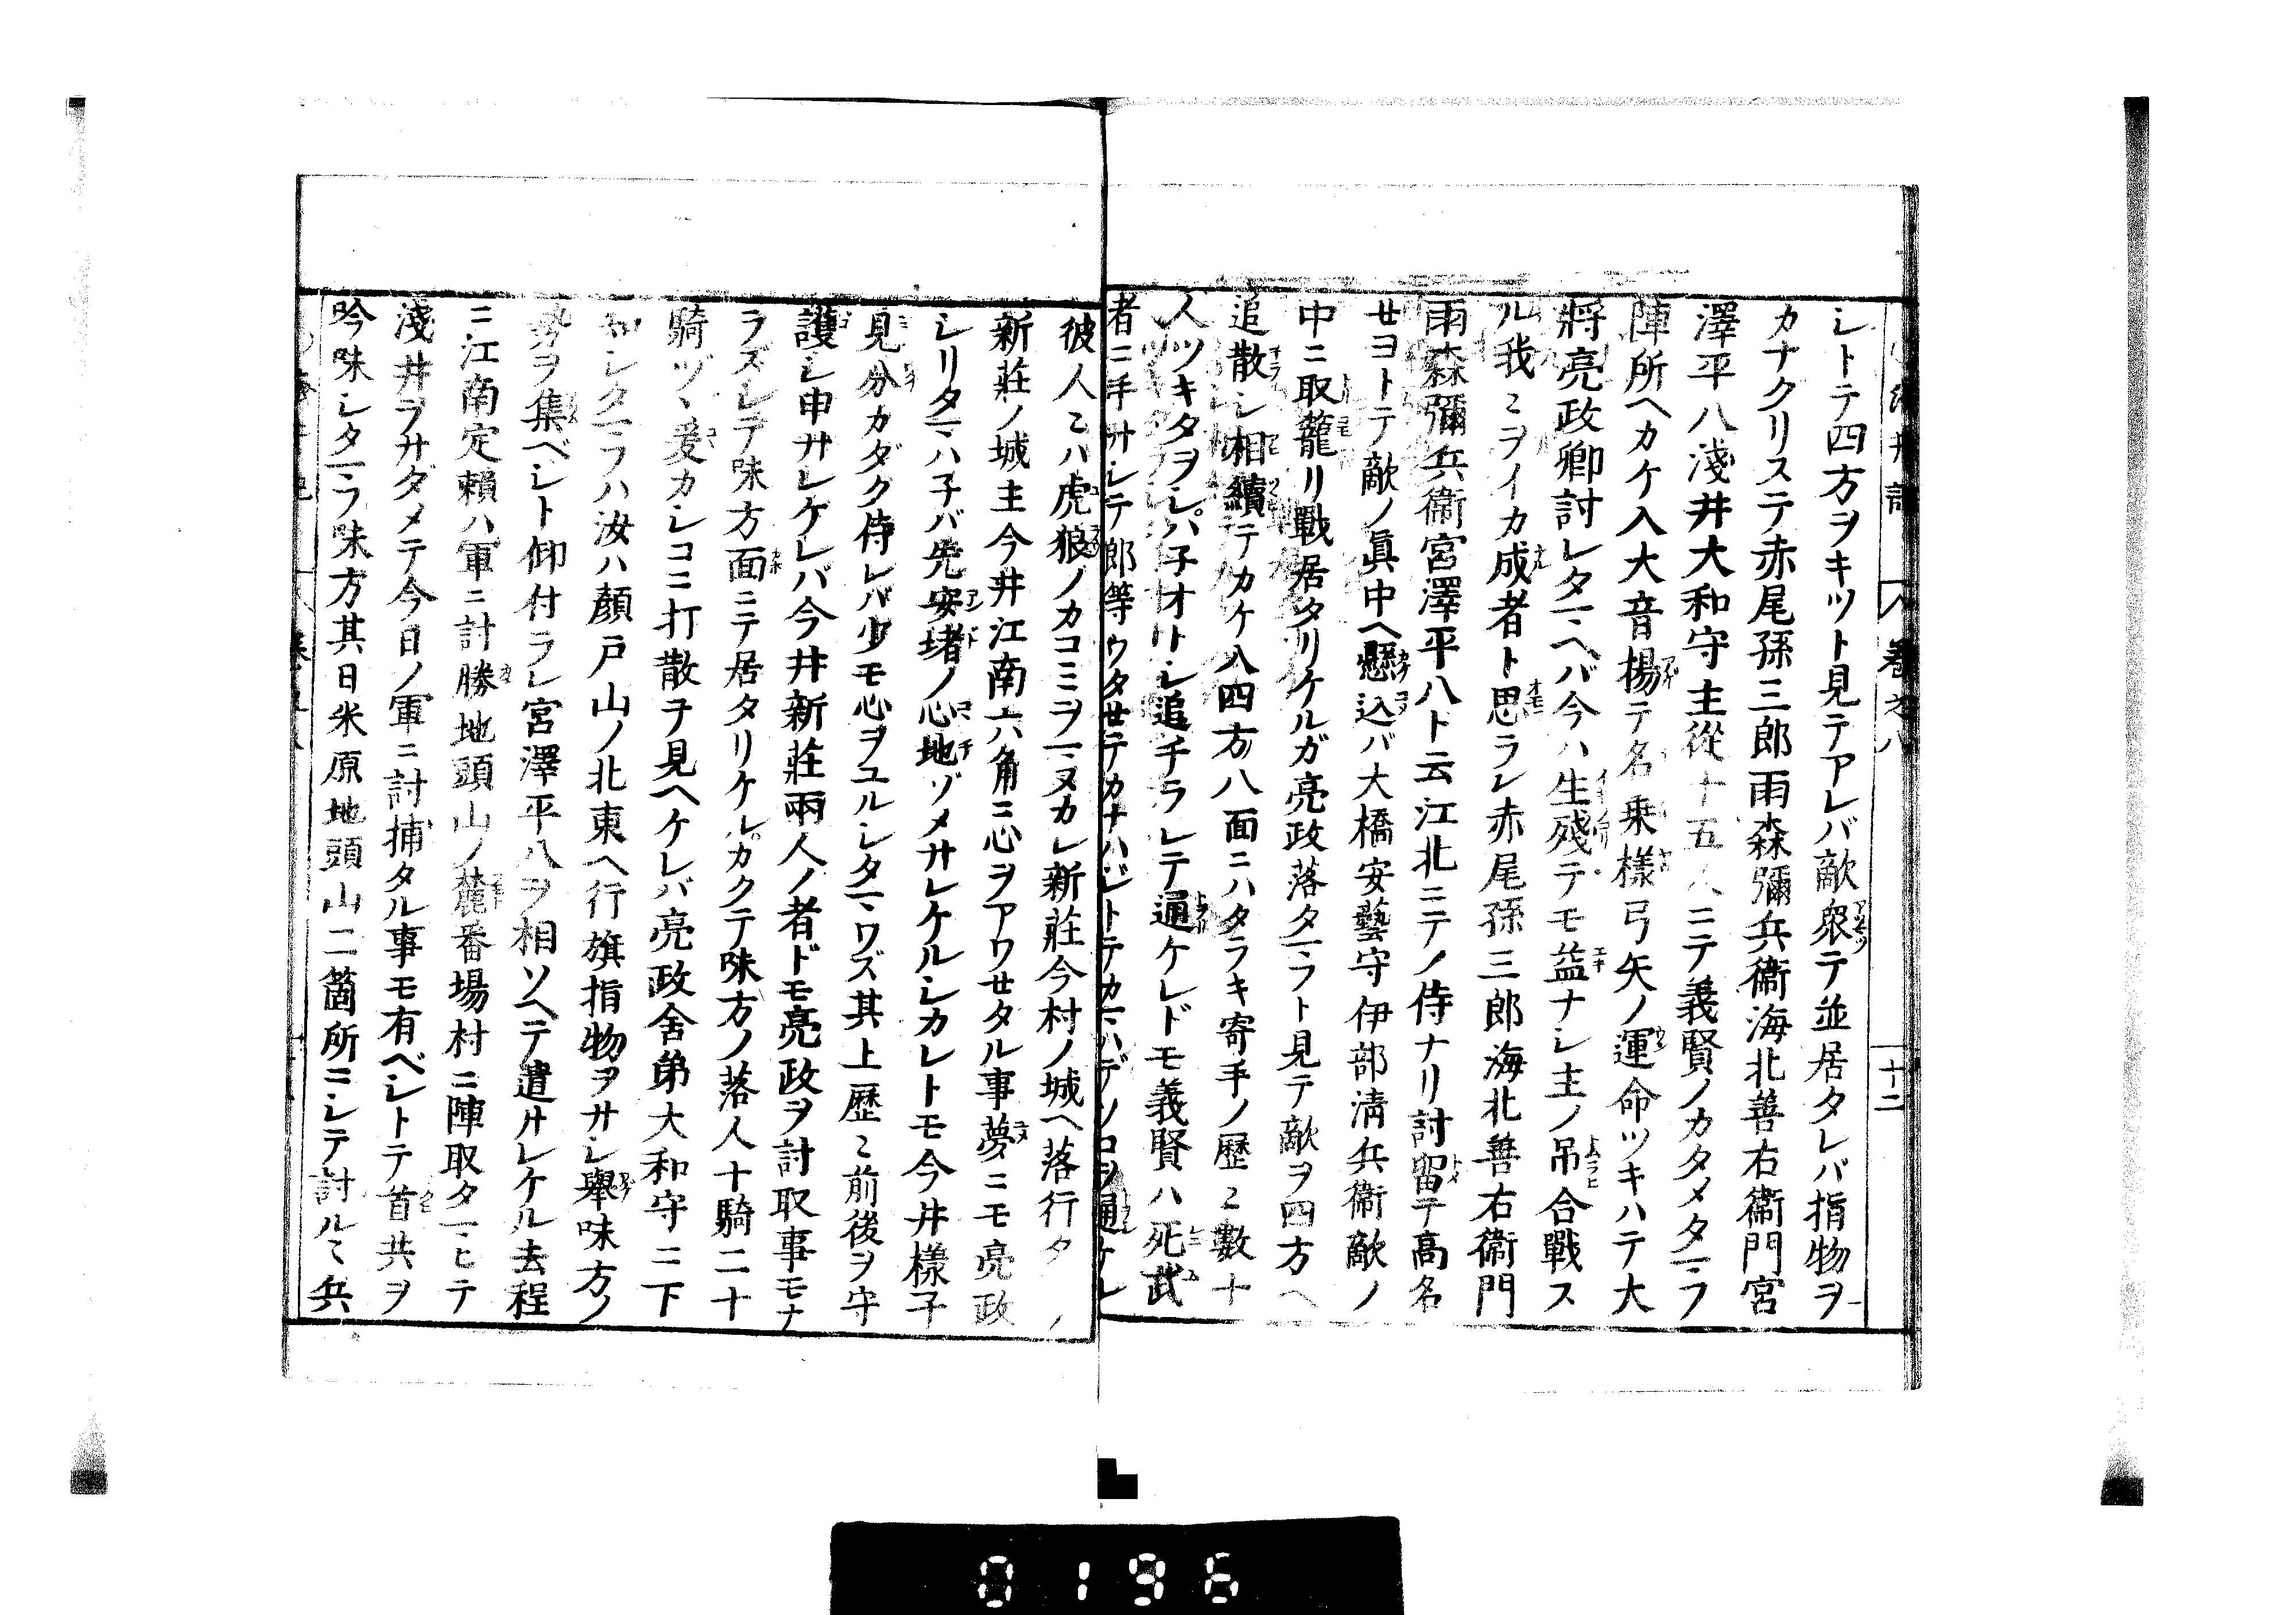 卷之八
十二
シトテ四方ヲキツト見テアレバ敵衆テ並居タレバ指物ヲ
カナクリステ赤尾孫三郎雨森彌兵衞海北善右衞門宮
澤平八淺井大和守主從十五人ニテ義賢ノカタメタマフ
陣所ヘカケ入大音揚テ名乘樣弓矢ノ運命ツキハテ大
將亮政卿討レタマヘバ今ハ生殘テモ益ナシ主ノ吊合戰ス
ル我〻ヲイカ成者ト思ラレ赤尾孫三郎海北善右衞門
雨森彌兵衞宮澤平八ト云江北ニテノ侍ナリ討留テ高名
セヨトテ敵ノ眞中ヘ懸込バ大橋安藝守伊部淸兵衞敵ノ
中ニ取籠リ戰居タリケルガ亮政落タマフト見テ敵ヲ四方ヘ
追散シ相續テカケ入四方八面ニハタラキ寄手ノ歷〻數十
人ツキタヲシハ子オトシ追チラシテ通ケレドモ義賢ハ死武
者ニ手サシテ郎等ウタセテカナハジトテカマハデソロヲ通ケレ
彼人〻ハ虎狼ノカコミヲマヌカレ新莊今村ノ城ヘ落行タ ノ
新莊ノ城主今井江南六角ニ心ヲアワセタル事夢ニモ亮政
シリタマハ子バ先安堵ノ心地ゾメサレケルシカレトモ今井樣子
見分カダク侍レバ少モ心ヲユルシタマワズ其上歷〻前後ヲ守
護シ申サレケレバ今井新莊兩人ノ者ドモ亮政ヲ討取事モナ
ラズシテ味方面ニテ居タリケルカクテ味方ノ落人十騎二十
騎ヅヽ爰カシコニ打散テ見ヘケレバ亮政舍弟大和守ニ下
知シタマフハ汝ハ顏戸山ノ北東ヘ行旗指物ヲサシ擧味方ノ
勢ヲ集ベシト仰付ラレ宮澤平八ヲ相ソヘテ遣サレケル去程
ニ江南定賴ハ軍ニ討勝地頭山ノ麓番場村ニ陣取タマヒテ
淺井ヲサダメテ今日ノ軍ニ討捕タル事モ有ベシトテ首共ヲ
吟味シタマフ味方其日米原地頭山二箇所ニシテ討ルヽ兵
0196